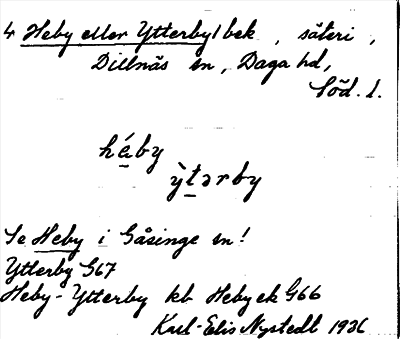 4 Heby eller Ytterby/bek , säteri ,
Dillnäs sn, Daga hd,
Söd. l.
héby
ỳtərby
Se Heby i Gåsinge sn!
Ytterby G67
Heby-Ytterby kb Heby ek G66
Karl-Elis Nystedt 1936